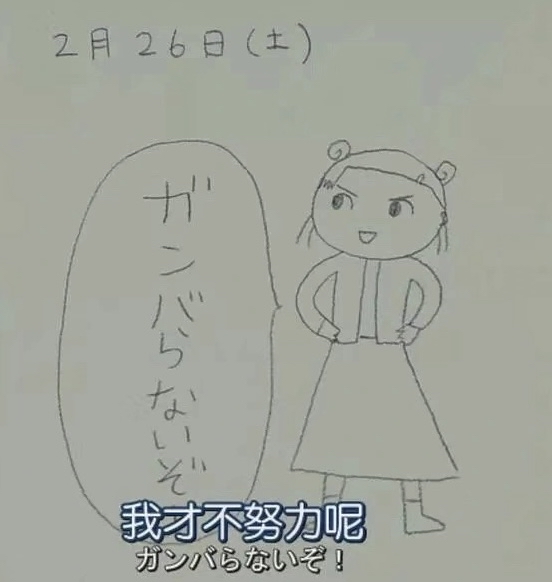 2月26日(土)
ガンバらないぞ
我才不努力呢
ガンバらないぞ！